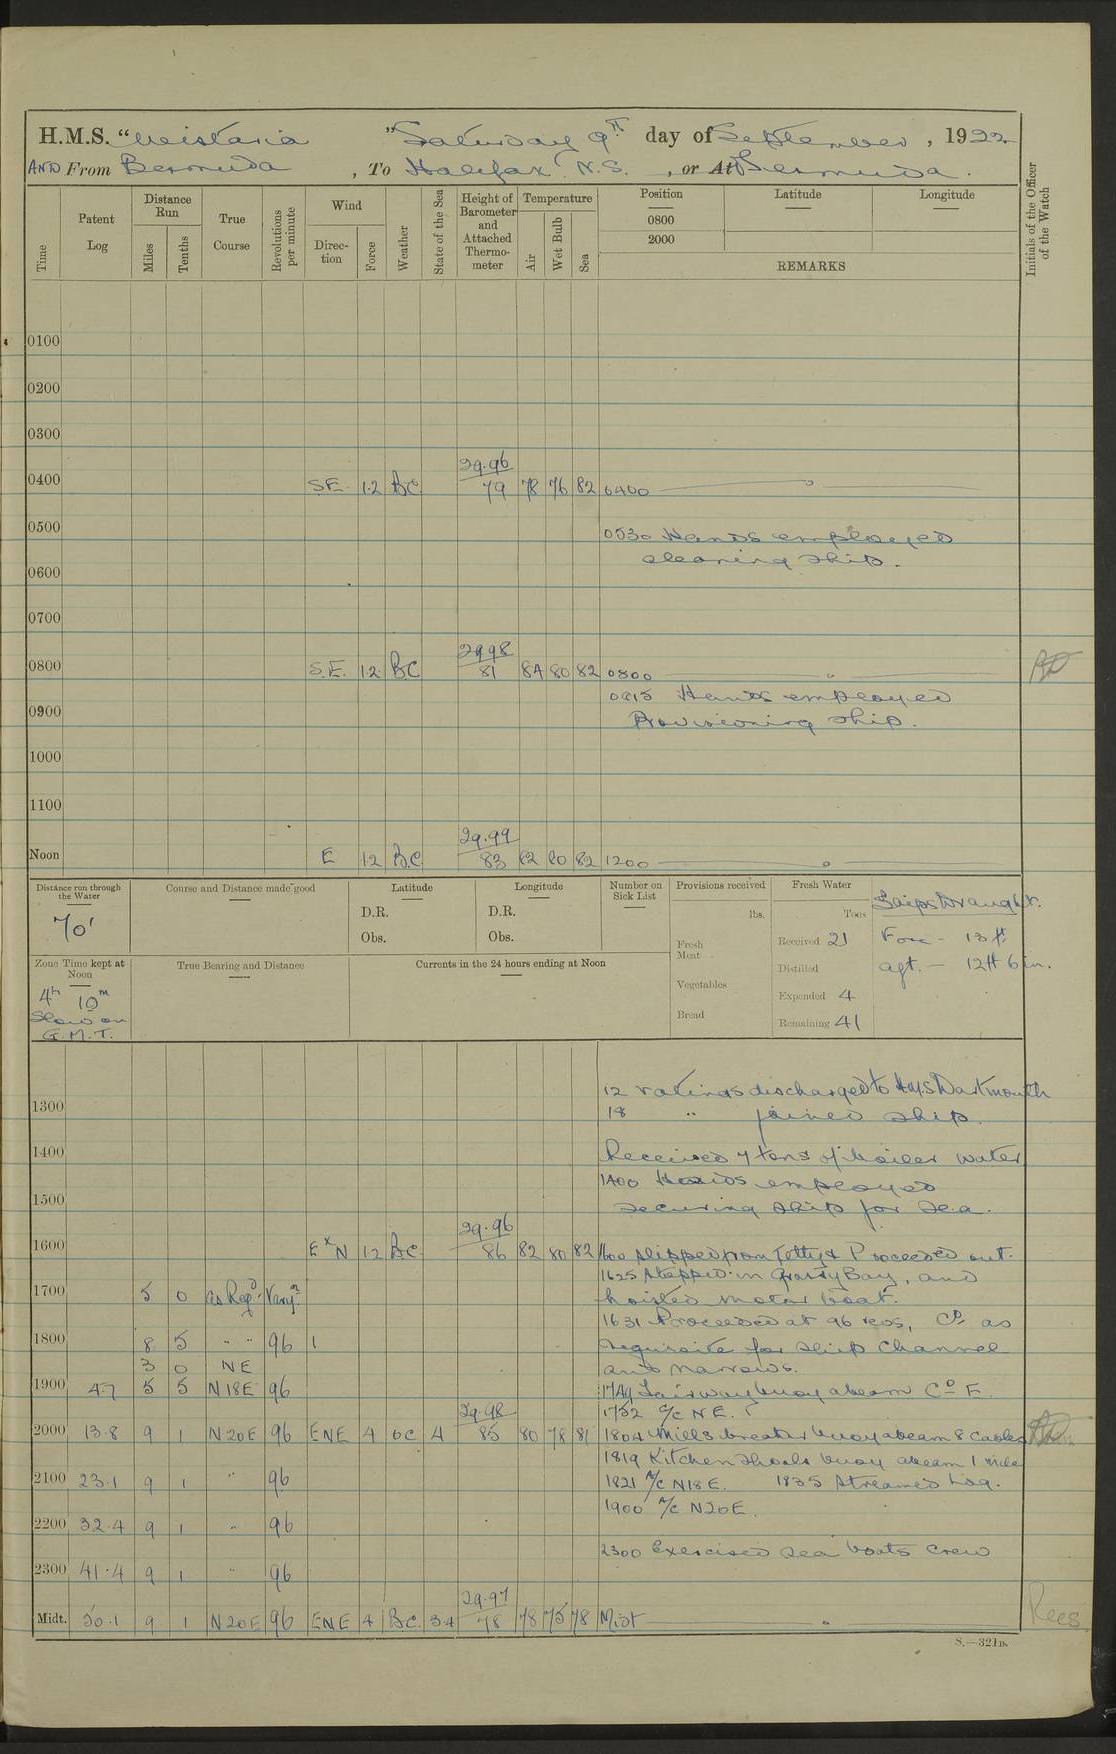 H.M.S. “Wistaria ” Saturday 9th day of September, 1922
AND From Bermuda, To Halifax N.S., or At Bermuda.
Time Patent Log Distance Run Miles Tenths True Course Revolutions per minute Wind Direction Force Weather State of the Sea Height of Barometer and Attached Thermometer Temperature Air Wet Bulb Sea Position 0800 2000 Latitude Longitude REMARKS Initials of the Officer of the Watch
0100
0200
0300
29.96
0400 SE 1.2 BC 79 78 76 82 0400
0500 0530 Hands employed
cleaning ship.
0600
0700
29.98
0800 S.E. 1.2 BC 81 84 80 82 0800
0815 Hands employed
0900 Provisioning ship.
1000
1100
29.99
Noon E 12 B.C. 83 82 80 82 1200
Distance run through the Water Course and Distance made good Latitude Longitude Number on Sick List Provisions received Fresh Water Ships Draught.
70' D.R. D.R. lbs. Tons
Obs. Obs. Fresh Meat Received 21 Fore - 13 ft
Zone Time kept at Noon True Bearing and Distance Currents in the 24 hours ending at Noon Distilled aft. - 12ft 6in.
4h 10m Vegetables Expended 4
Slow on G.M.T. Bread Remaining 41
12 ratings discharged to HMS Dartmouth
1300 18 " joined ship.
1400 Received 7 tons of boiler water
1400 Hands employed
1500 securing ship for sea.
29.96
1600 ExN 12 BC 86 82 80 82 1600 Slipped from Jetty & Proceeded out.
1625 Stopped in Grassy Bay, and
1700 5 0 as Reqd Varys hoisted motor boat.
1631 Proceeded at 96 revs, Co as
1800 8 5 " " 96 requisite for ship channel
3 0 NE and Narrows.
1900 4.7 5 5 N18E 96 1749 Fairway buoy abeam Co E.
29.98 1752 a/c NE.
2000 13.8 9 1 N20E 96 ENE 4 bc 4 85 80 78 81 1804 Mills breaker buoy abeam 8 cables
1819 Kitchen Shoals buoy abeam 1 mile
2100 23.1 9 1 " 96 1821 A/c N18E. 1835 Streamed Log.
1900 A/c N20E.
2200 32.4 9 1 " 96
2300 Exercised sea boats crew
2300 41.4 9 1 " 96
29.97
Midt. 50.1 9 1 N20E 96 ENE 4 BC 34 78 78 75 78 Midt
S.—321B.